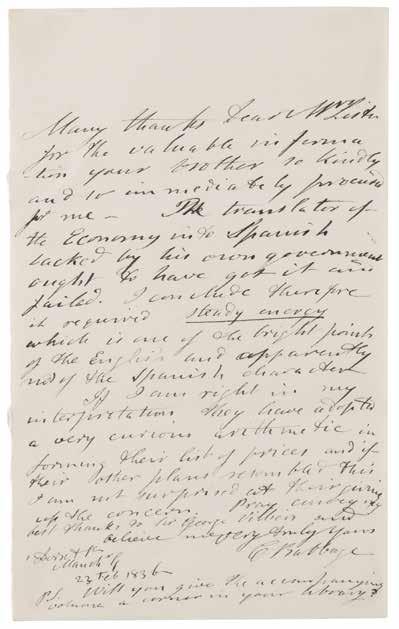 Many thanks Dear Mrs Lister
for the valuable informa
tion your brother so kindly
and so immediately procured
for me — The translator of
the Economy into Spanish
backed by his own government
ought to have got it and
failed. I conclude therefore
it required steady energy
which is one of the bright points
of the English and apparently
not of the Spanish character
If I am right in my
interpretation they have adopted
a very curious arithmetic in
forming their list of prices and if
their other plans resembled this
I am not surprised at their giving
up the concern. Pray convey my
best thanks to Sir George Villiers and
believe me very truly yours
C Babbage
Dorset St
Manch Sq
23 Feb 1836
PS. Will you give the accompanying
volume a corner in your library?